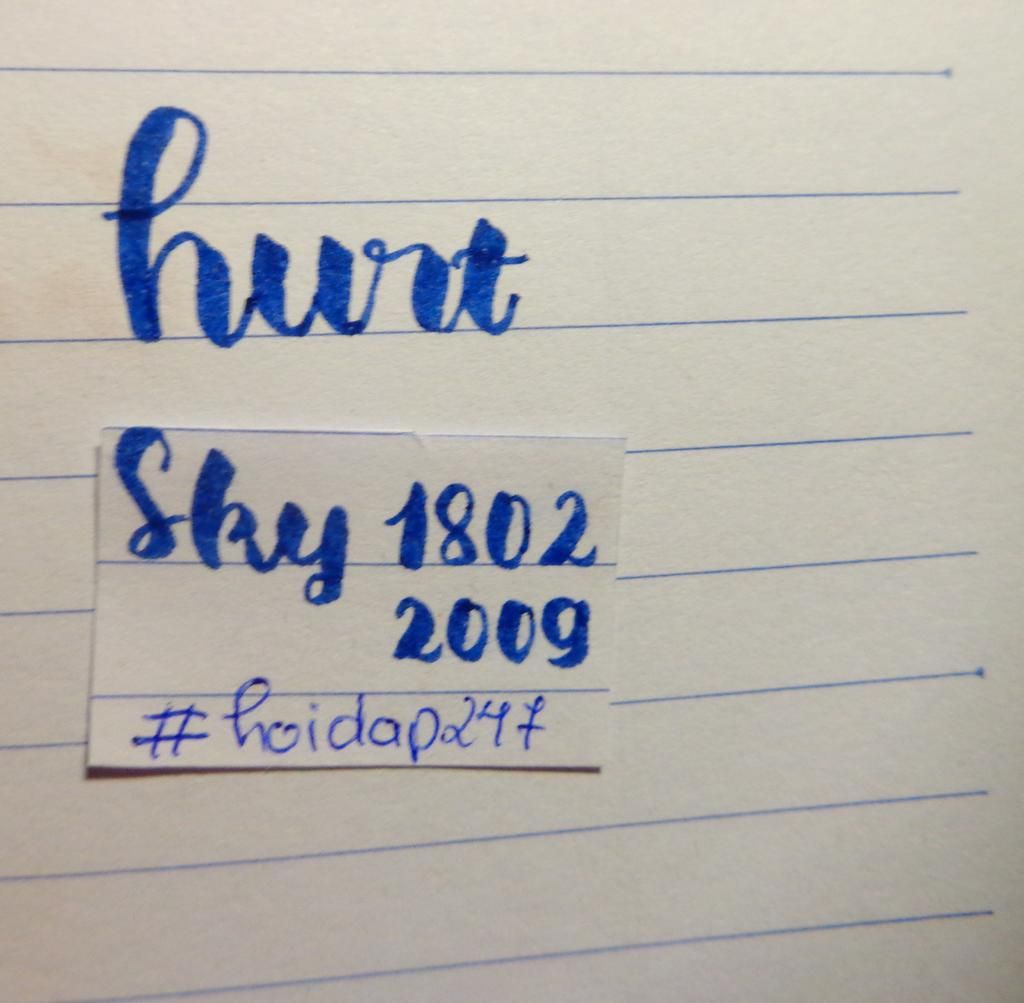 hurt
Sky 1802
2009
#hoidap247